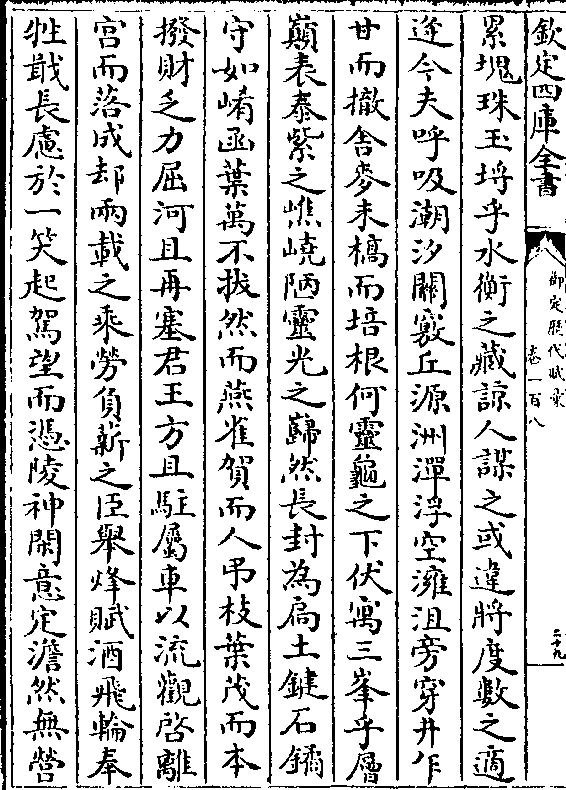 欽定四庫全書
御定歷代賦彙
卷一百八
二十九
累塊珠玉埒乎水衡之藏諒人謀之或違將度數之適
逢今夫呼吸潮汐關竅丘源洲潬浮空灘沮旁穿井乍
甘而撤舍麥未槁而培根何靈龜之下伏寓三峯乎層
巔表泰紫之嶕嶢陋靈光之巋然長封為扃土鍵石鐍
守如崤函葉萬不拔然而燕雀賀而人弔枝葉茂而本
撥財乏力屈河且再塞君王方且駐屬車以流觀啓離
宫而落成却兩載之乘勞負薪之臣舉烽賦酒飛輪奉
牲戢長慮於一笑起駕望而憑陵神閑意定澹然無營